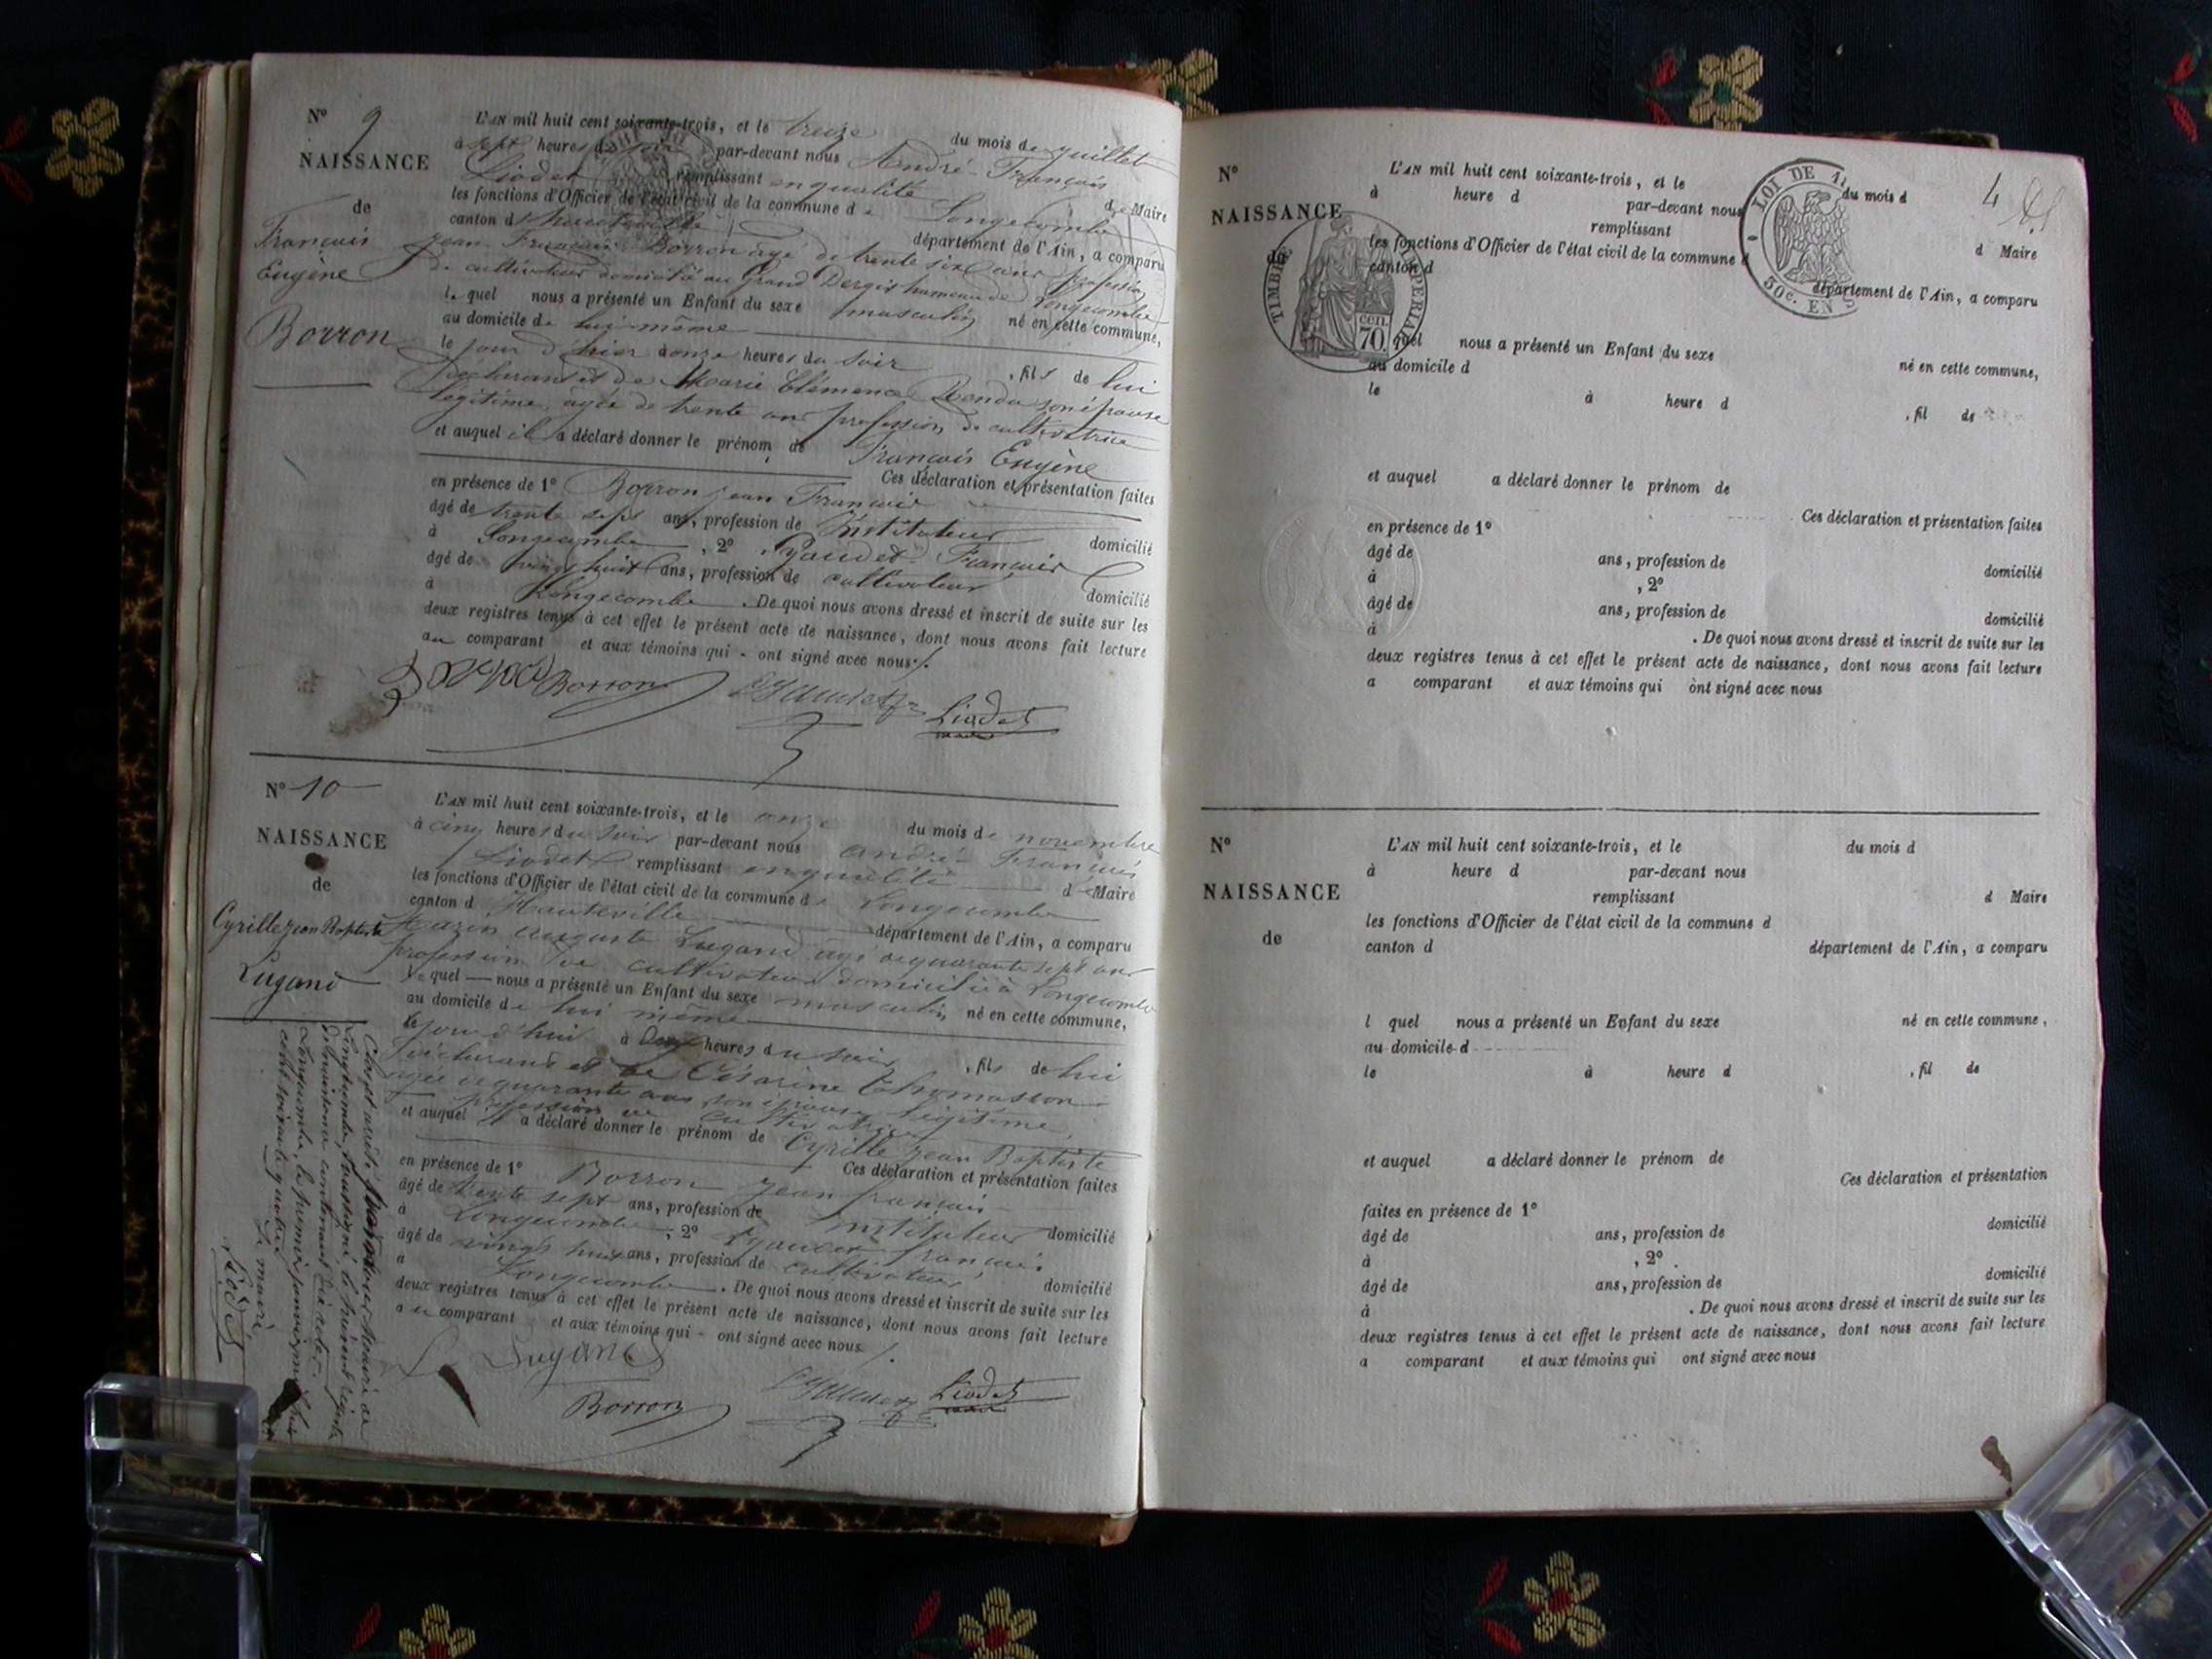 N° 9
NAISSANCE
de
François
Eugène
Borron
L'AN mil huit cent soixante-trois, et le treize du mois de juillet
à sept heures du soir par-devant nous André François
Liodet remplissant en qualité de Maire
les fonctions d'Officier de l'état civil de la commune de Longecombe
canton d'hauteville département de l'Ain, a comparu
jean François Borron âgé de trente six ans profession
de cultivateur domicilié au Grand Dergis hameau de Longecombe
le quel nous a présenté un Enfant du sexe masculin né en cette commune,
au domicile de lui-même
le jour d'hier à onze heures du soir , fils de lui
déclarant et de Marie Clémence Rendu son épouse
légitime, agée de trente ans profession de cultivatrice
et auquel il a déclaré donner le prénom de François Eugène
Ces déclaration et présentation faites
en présence de 1° Borron jean François
âgé de trente sept ans, profession de Instituteur domicilié
à Longecombe , 2° Gaudet François
âgé de vingt huit ans, profession de cultivateur domicilié
à Longecombe . De quoi nous avons dressé et inscrit de suite sur les
deux registres tenus à cet effet le présent acte de naissance, dont nous avons fait lecture
au comparant et aux témoins qui - ont signé avec nous.
Borron Liodet
maire
N° 10
NAISSANCE
de
Cyrille jean Baptiste
Lugand
L'AN mil huit cent soixante-trois, et le onze du mois de novembre
à cinq heures du soir par-devant nous andré François
Liodet remplissant en qualité de Maire
les fonctions d'Officier de l'état civil de la commune de Longecombe
canton d Hauteville département de l'Ain, a comparu
Marin auguste Lugand âgé de quarante sept ans
profession de cultivateur domicilié à Longecombe
le quel — nous a présenté un Enfant du sexe masculin né en cette commune,
au domicile de lui même
le jour d'hui à heures du soir , fils de lui
déclarant et de Césarine Thomasson
agée de quarante ans son épouse légitime,
profession de cultivatrice
et auquel il a déclaré donner le prénom de Cyrille jean Baptiste
Ces déclaration et présentation faites
en présence de 1° Borron jean françois
âgé de trente sept ans, profession de Instituteur domicilié
à Longecombe , 2° Gaudet françois
âgé de vingt huit ans, profession de cultivateur domicilié
à Longecombe . De quoi nous avons dressé et inscrit de suite sur les
deux registres tenus à cet effet le présent acte de naissance, dont nous avons fait lecture
au comparant et aux témoins qui - ont signé avec nous.
Lugand
Borron Liodet
maire
Clos et arrêté par nous Maire de
Longecombe, soussigné, le présent registre
de naissance contenant dix actes.
Longecombe, le premier janvier mil huit
cent soixante quatre
Le maire
Liodet
N° 4
NAISSANCE
de
TIMBRE IMPERIAL
70 cen.
LOI DE
50c. EN
L'AN mil huit cent soixante-trois, et le du mois d
à heure d par-devant nous
remplissant d Maire
les fonctions d'Officier de l'état civil de la commune d
canton d département de l'Ain, a comparu
quel nous a présenté un Enfant du sexe né en cette commune,
au domicile d
le à heure d , fil de
et auquel a déclaré donner le prénom de
Ces déclaration et présentation faites
en présence de 1°
âgé de ans, profession de domicilié
à , 2°
âgé de ans, profession de domicilié
à . De quoi nous avons dressé et inscrit de suite sur les
deux registres tenus à cet effet le présent acte de naissance, dont nous avons fait lecture
a comparant et aux témoins qui ont signé avec nous
N°
NAISSANCE
de
L'AN mil huit cent soixante-trois, et le du mois d
à heure d par-devant nous
remplissant d Maire
les fonctions d'Officier de l'état civil de la commune d
canton d département de l'Ain, a comparu
l quel nous a présenté un Enfant du sexe né en cette commune,
au domicile d
le à heure d , fil de
et auquel a déclaré donner le prénom de
Ces déclaration et présentation
faites en présence de 1°
âgé de ans, profession de domicilié
à , 2°
âgé de ans, profession de domicilié
à . De quoi nous avons dressé et inscrit de suite sur les
deux registres tenus à cet effet le présent acte de naissance, dont nous avons fait lecture
a comparant et aux témoins qui ont signé avec nous